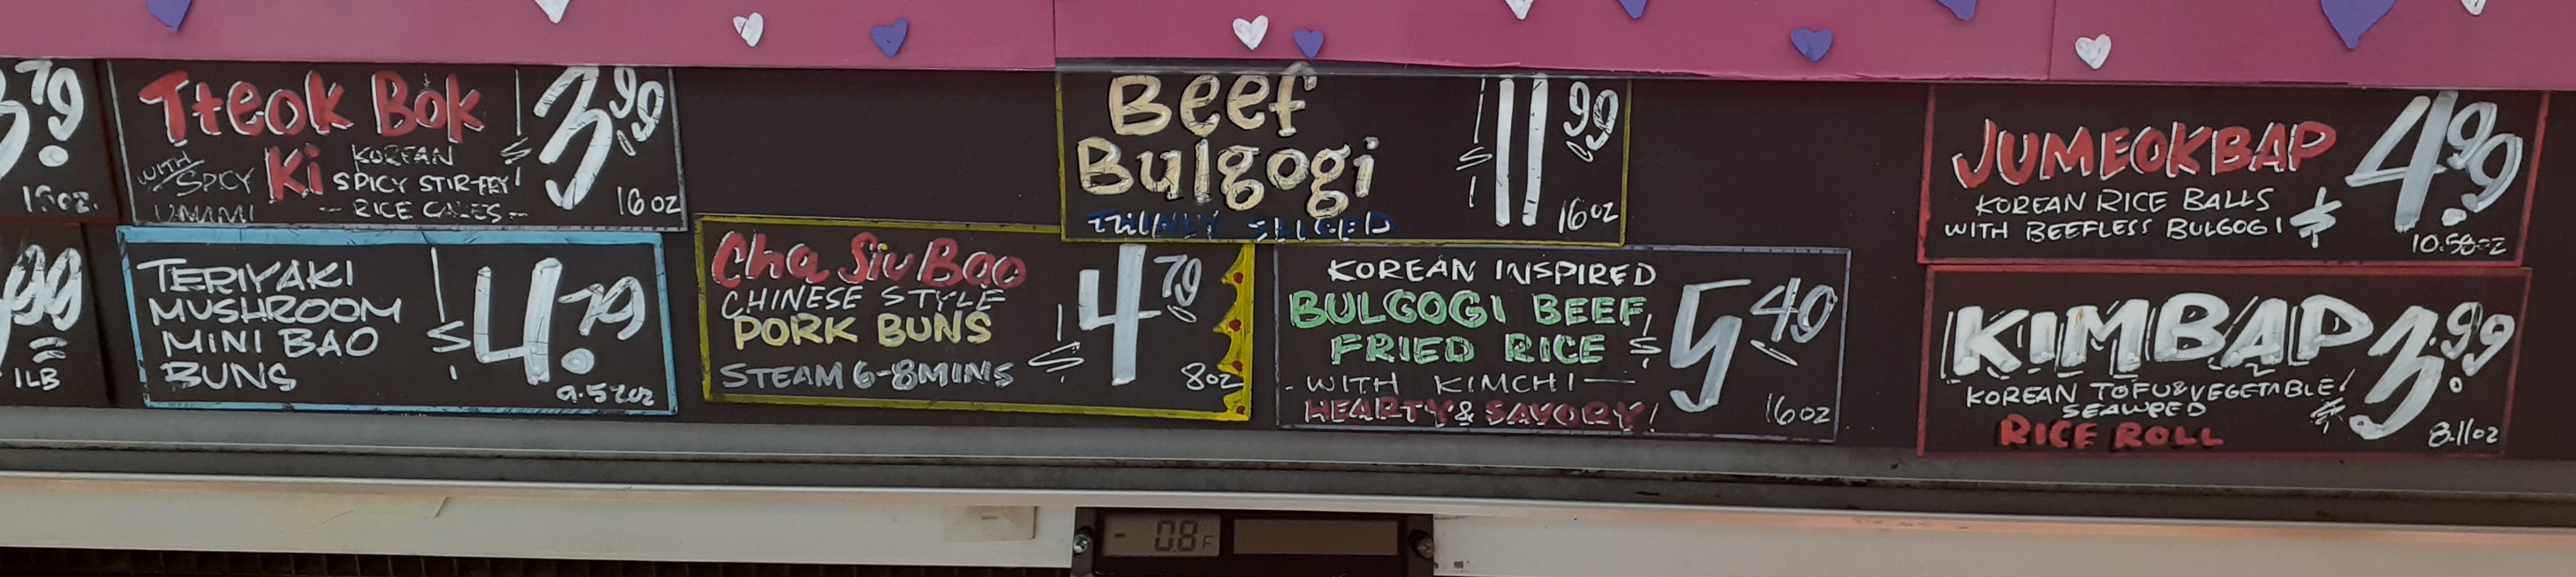 3.79
16oz.
Tteok Bok
Ki
WITH SPICY
UMAMI
KOREAN
SPICY STIR-FRY!
- RICE CAKES -
$3.99
16oz
Beef
Bulgogi
THINLY SLICED
$11.99
16oz
JUMEOKBAP
KOREAN RICE BALLS
WITH BEEFLESS BULGOGI
$4.99
10.58oz
99
1LB
TERIYAKI
MUSHROOM
MINI BAO
BUNS
$4.79
9.52oz
Cha Siu Bao
CHINESE STYLE
PORK BUNS
STEAM 6-8MINS
$4.79
8oz
KOREAN INSPIRED
BULGOGI BEEF
FRIED RICE
- WITH KIMCHI -
HEARTY & SAVORY!
$5.49
16oz
KIMBAP
KOREAN TOFU & VEGETABLE!
SEAWEED
RICE ROLL
$3.99
8.11oz
- 0.8 F